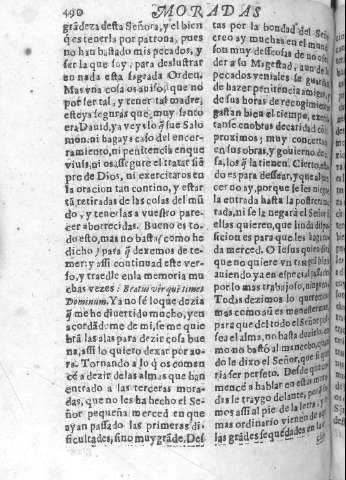 490 MORADAS
grãdeza desta Señora, y el bien
q̃ es tenerla por patrona, pues
no han bastado mis pecados, y
ser la que soy, para deslustrar
en nada esta sagrada Orden.
Mas vna cosa os auiso, que no
por ser tal, y tener tal madre,
esteys seguras que muy santo
era Dauid, ya veys lo q̃ fue Salo
mon. ni hagays caso del encer-
ramiento, ni penitencia en que
viuis, ni os assegure el tratar siẽ
pre de Dios, ni exercitaros en
la oracion tan contino, y estar
tã retiradas de las cosas del mũ
do, y tenerlas a vuestro pare-
cer aborrecidas. Bueno es to-
do esto, mas no basta (como he
dicho) para q̃ dexemos de te-
mer: y assi continuad este ver-
so, y traedle en la memoria mu
chas vezes: Beatus vir qui timet
Dominum. Ya no sé lo que dezia
q̃ me he diuertido mucho, y en
acordãdome de mi, se me quie
brã las alas para dezir cosa bue
na, assi lo quiero dexar por ao-
ra. Tornando a lo q̃ os comen
cé a dezir de las almas que han
entrado a las terceras mora-
das, que no les ha hecho el Se-
ñor pequeña merced en que
ayan passado las primeras di-
ficultades, sino muy grãde. Des
tas por la bondad del Señor
creo ay muchas en el mundo
son muy desseosas de no ofen
der a su Magestad, aun de los
pecados veniales se guardan,
de hazer penitencia amigas, y
de sus horas de recogimiento,
gastan bien el tiempo, exerci
tanse en obras de caridad cõ los
proximos; muy concertadas
en sus obras, y gouierno de ca-
sa, los q̃ la tienen. Cierto esta
do es para dessear, y que al
cer no ay, porque se les niegue
la entrada hasta la postrera mo
rada, ni se la negará el Señor si
ellas quieren, que linda dis
posicion es para que les haga to
da merced. O Iesus quien dirà
que no quiere vn tan grã bien
auiendo ya en especial passado
por lo mas trabajoso, ninguno.
Todas dezimos lo queremos,
mas como aũ es menester
para que del todo el Señor pos
sea el alma, no basta dezirlo, co
mo no bastó al mancebo, quan
do le dixo el Señor, que si que
ria ser perfeto. Desde que co-
mencé a hablar en estas mora
das le traygo delante, porque so
mos assi al pie de la letra, y lo
mas ordinario vienen de aqui
las grãdes sequedades en la